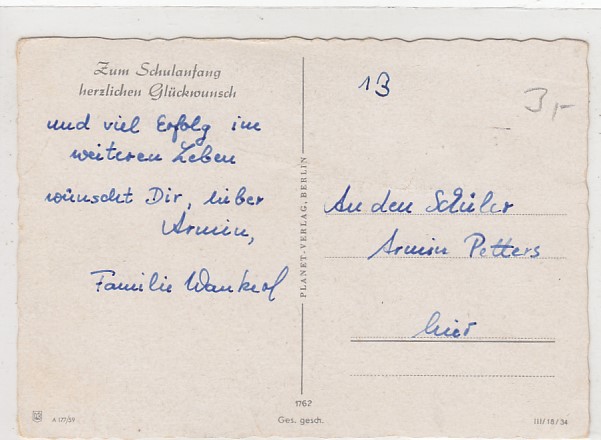 Zum Schulanfang
herzlichen Glückwunsch
und viel Erfolg im
weiteren Leben
wünscht Dir, lieber
Armin,
Familie
13
3,-
An den Schüler
Armin Petters
hier
PLANET-VERLAG, BERLIN
1762
A 177/59
Ges. gesch.
III/18/34